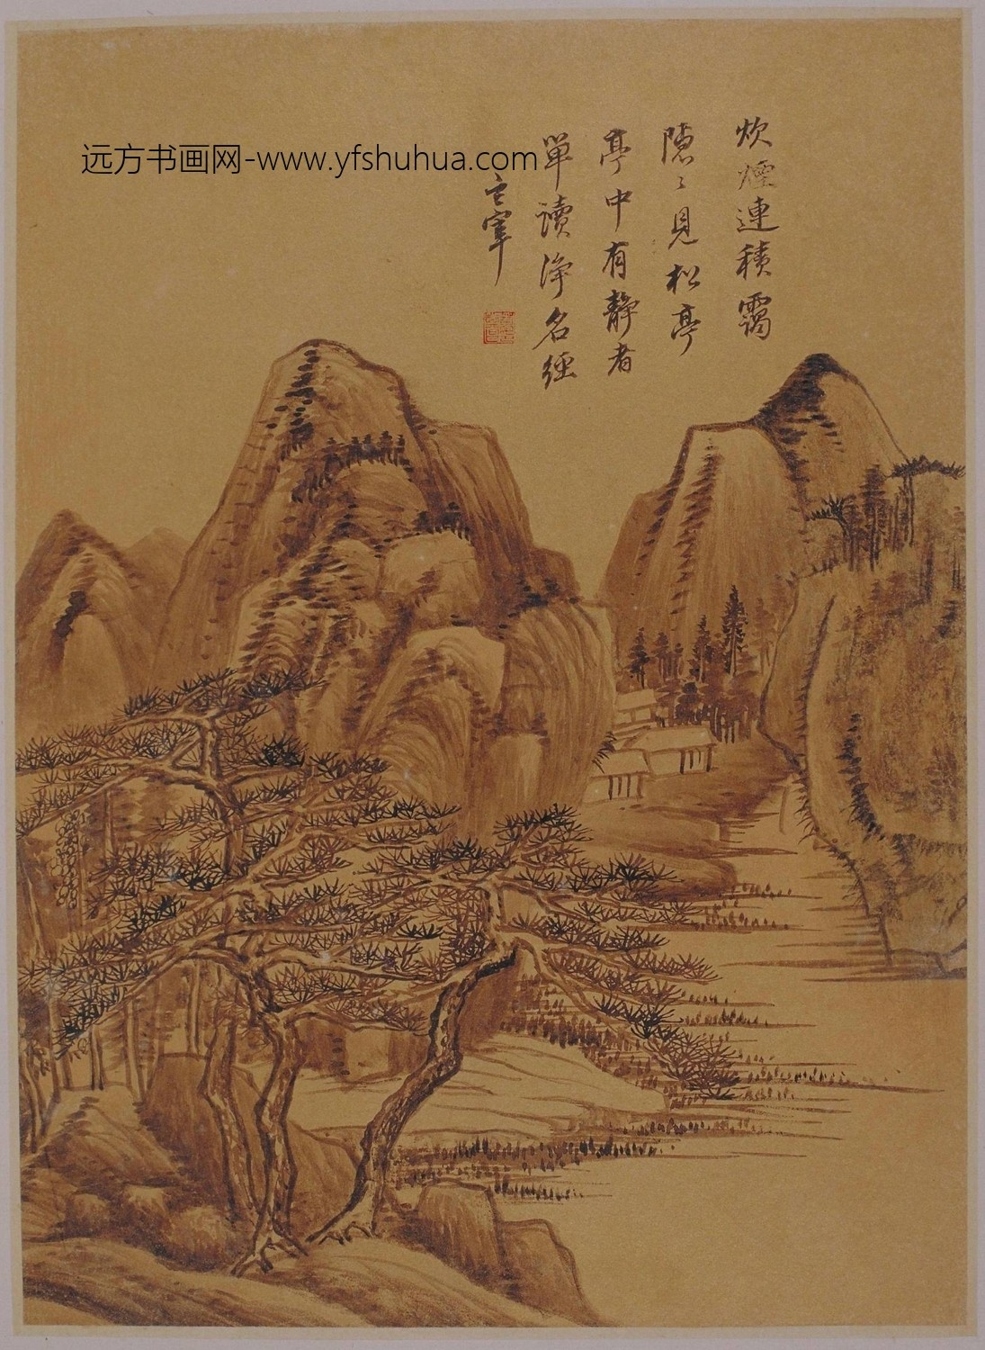 远方书画网-www.yfshuhua.com
炊煙連積靄
隱〻見松亭
亭中有靜者
單讀淨名經